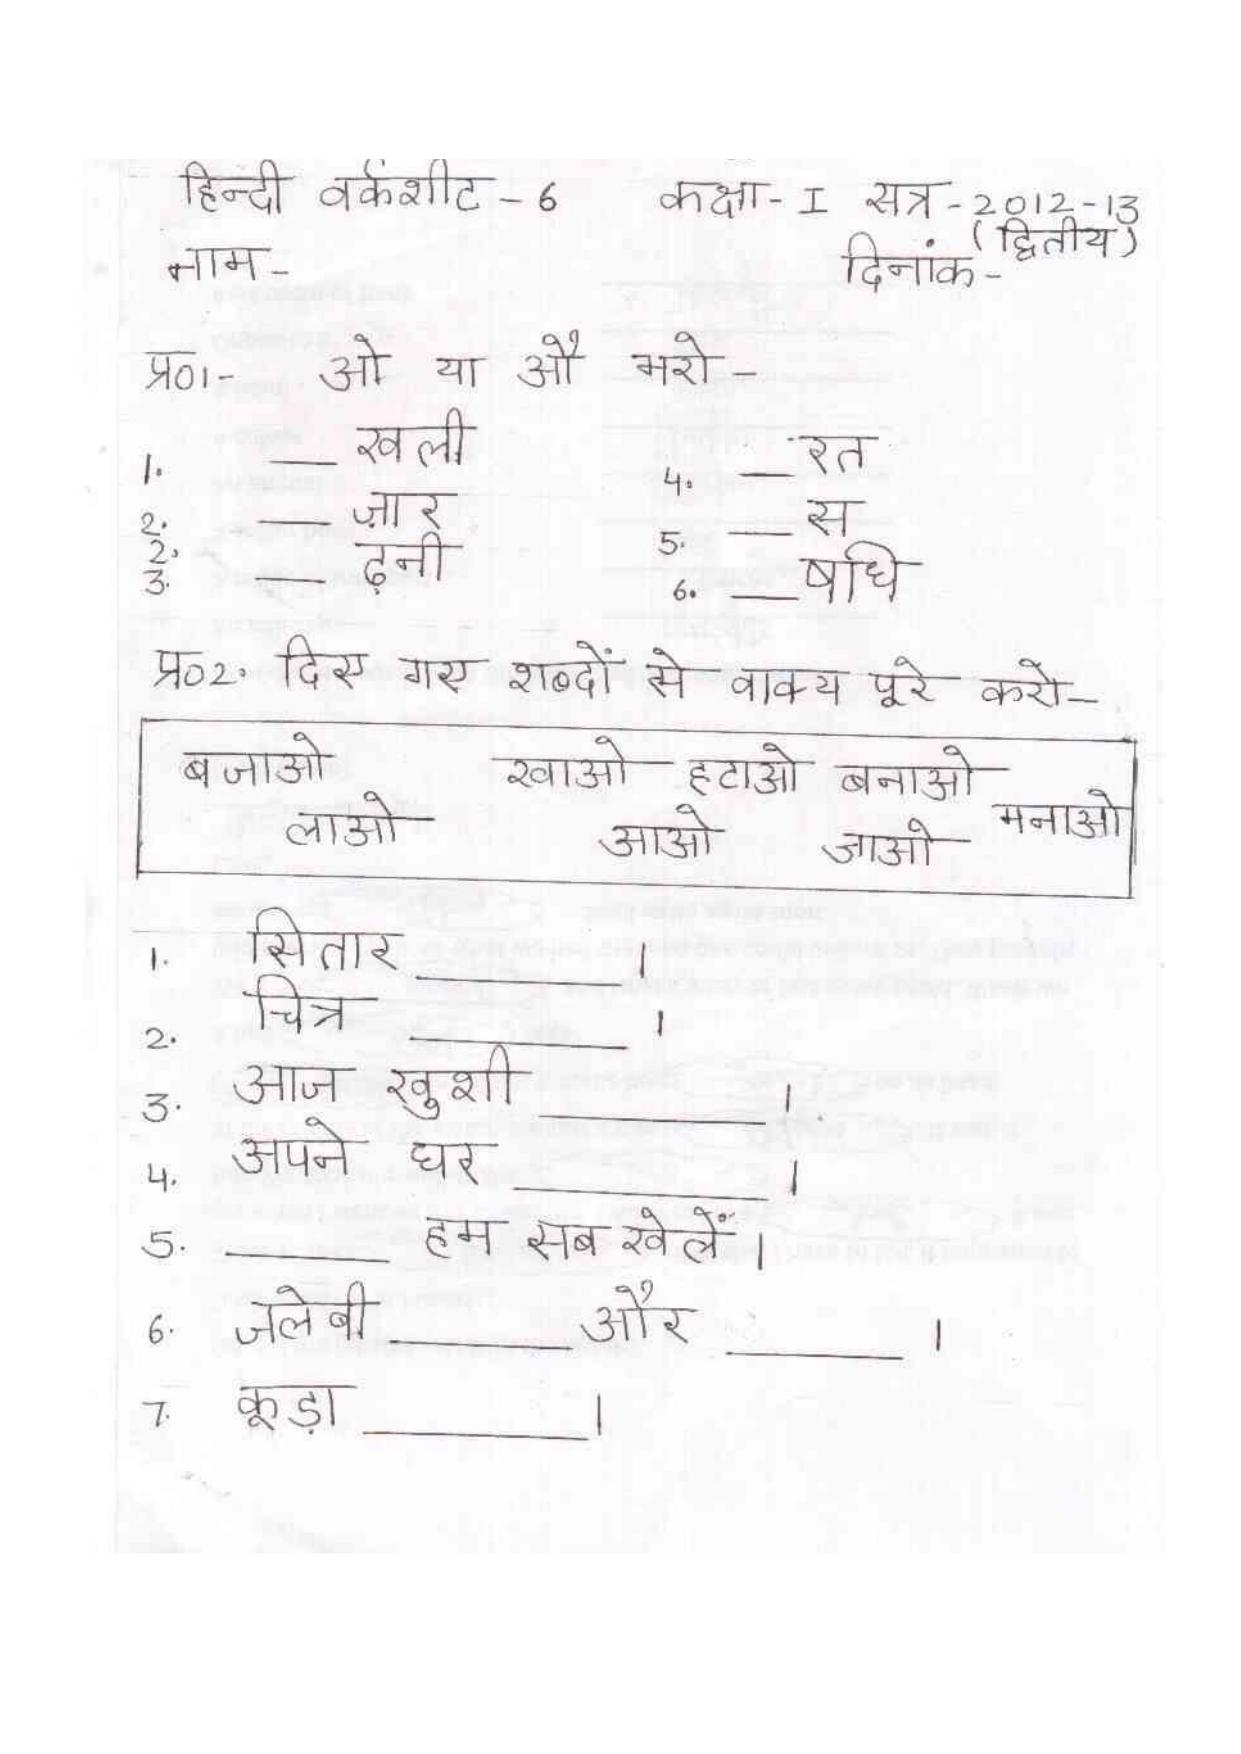 हिन्दी वर्कशीट - 6 कक्षा - I सत्र - 2012-13
(द्वितीय)
नाम - दिनांक -
प्र01- ओ या औ भरो -
1. __ खली 4. __ रत
2. __ ज़ार 5. __ स
2.
3. ढ़नी 6. __ षधि
प्र02. दिए गए शब्दों से वाक्य पूरे करो -
बजाओ खाओ हटाओ बनाओ
लाओ आओ जाओ मनाओ
1. सितार ________ ।
2. चित्र ________ ।
3. आज खुशी ________ ।
4. अपने घर ________ ।
5. ______ हम सब खेलें ।
6. जलेबी ______ और ______ ।
7. कूड़ा ________ ।